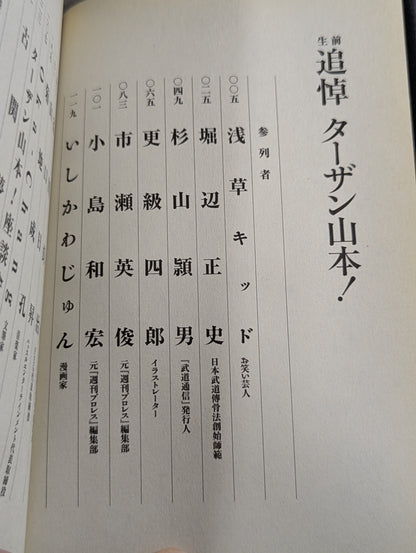 生前
追悼 ターザン山本!
参列者
〇〇五 浅草キッド お笑い芸人
〇二五 堀辺正史 日本武道傳骨法創始師範
〇四九 杉山頴男 『武道通信』発行人
〇六五 更級四郎 イラストレーター
〇八三 市瀬英俊 元『週刊プロレス』編集部
一〇一 小島和宏 元『週刊プロレス』編集部
一一九 いしかわじゅん 漫画家
ターザン山本!座談会